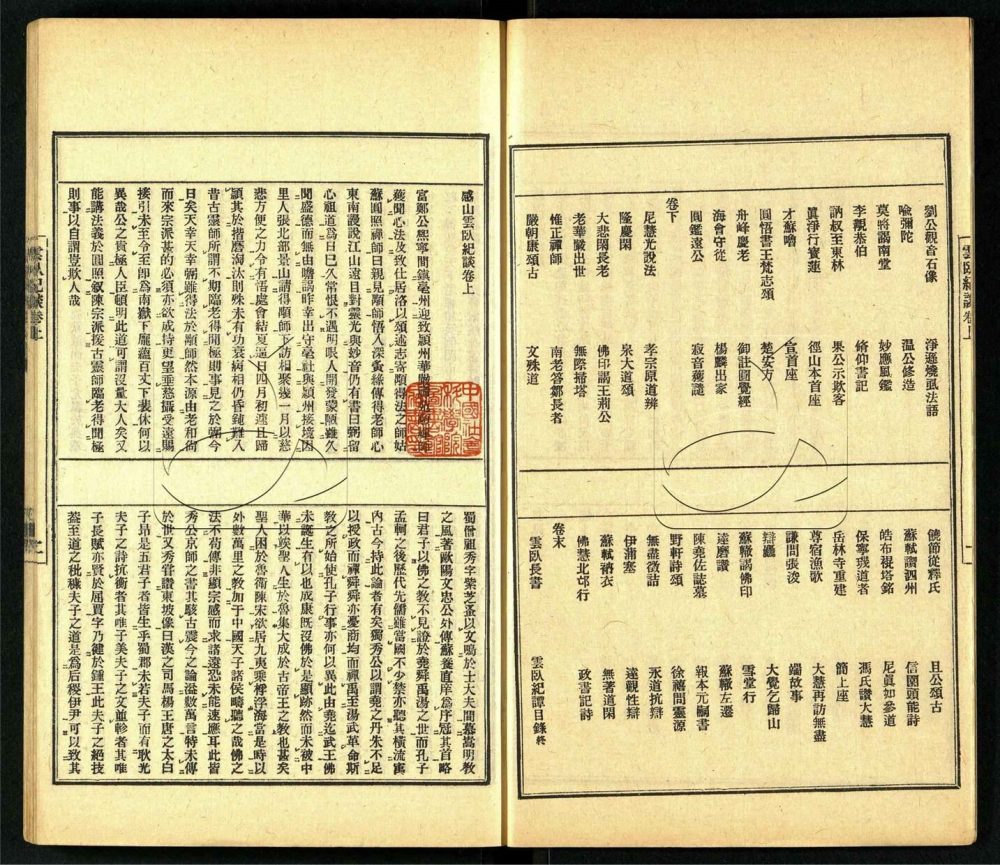 雲臥紀談卷上
劉公觀音石像
淨遜嬎虱法語
喩彌陀
溫公修造
莫將謁南堂
妙應風鑑
李觀恭伯
脩仰書記
訥叔至東林
果公示欺客
眞淨行實蓮
徑山本首座
才蘇嚕
宣首座
圓悟書王梵志頌
楚安方
舟峰慶老
御註圓覺經
海會守從
楊麟出家
圓鑑遠公
寂音蒦譴
卷下
尼慧光說法
孝宗原道辨
隆慶閑
泉大道頌
大悲閑長老
佛印謁王荆公
老華嚴出世
無際搭塔
惟正禪師
南老答鄒長者
嚴朝康頌古
文殊道
饒節從釋氏
且公頌古
蘇軾謂泗州
信園頭能詩
皓布裩塔銘
尼眞如參道
保寧璣道者
馮氏讚大慧
岳林寺重建
簡上座
尊宿漁歌
大慧再訪無盡
謙問張浚
端故事
辯龘
大覺乞歸山
蘇轍謁佛印
雪堂行
達磨讚
蘇轍左遷
陳堯佐誌墓
報本元嗣書
野軒詩頌
徐禧問靈源
無盡徵詰
永道抗辯
伊蒲塞
達觀性辯
蘇軾衲衣
無著道閑
佛慧北邙行
政書記詩
卷末
雲臥長書
雲臥紀譚目錄終
感山雲臥紀談卷上
富鄭公熙寧間鎮亳州迎致頴州華嚴
蘹聞心法及致仕居洛以頌述志寄顒得法之師姑
蘇圓照禪師曰親見顒師悟入深夤緣傳得老師心
東南謾說江山遠目對靈光與妙音仍有書曰弼留
心祖道爲日已久常恨不遇明眼人開發蒙陋雖久
聞盛德而無由瞻謁昨幸出守亳社與頴州接境因
里人張北部景山請得顒師下訪相聚幾一月以慈
悲方便之力令有悟處會結夏逼日四月初遽且歸
頴其於揩磨淘汰則殊未有功衰病相仍昏鈍難入
昔古靈師所謂不期臨老得聞極則事見之於弼今
日矣天幸天幸弼雖得法於顒師然本源由老和尙
而來宗派甚的必須亦欲成持更望垂慈攝受遠賜
接引未至令至卽爲南嶽下龐蘊百丈下裴休何以
異哉公之貴極人臣頓明此道可謂沒量大人矣又
能講法義於圓照敘陳宗派援古靈師臨老得聞極
則事以自謂豈欺人哉
蜀僧祖秀字紫芝蚤以文鳴於士大夫間慕嵩明教
之風著歐陽文忠公外傳蘇養直庠爲序冠其首略
曰君子以佛之敎不見證於堯舜禹湯之世而孔子
孟軻之後歷代先儒雖當國不少禁亦聽其橫流寓
內古今持此論者有矣獨秀公以謂堯之丹朱不足
以授政而禪舜舜亦憂商均而禪禹至湯武革命斯
敎之所始使孔子行事亦何以異此由堯迄武王佛
未誕生有以也成康旣沒佛於是顯跡然而未被中
華以竢聖人生於魯集大成於古帝王之敎也甚矣
聖人困於魯衞陳宋欲居九夷乘桴浮海當是時以
外數萬里之敎加于中國天子諸侯疇聽之哉佛之
法不苟傳非顯宗感而求諸遠恐未能速應耳此皆
秀公京師之書其駭古震今之論溢數萬言特未傳
於世又秀嘗讚東坡像曰漢之司馬楊王唐之太白
子昂是五君子者皆生乎蜀郡未若夫子而有耿光
夫子之詩抗衡者其唯子美夫子之文並軫者其唯
子長賦亦賢於屈賈字乃健於鍾王此夫子之絕技
葢至道之秕穅夫子之道是爲后稷伊尹可以致其
雲臥紀談卷上